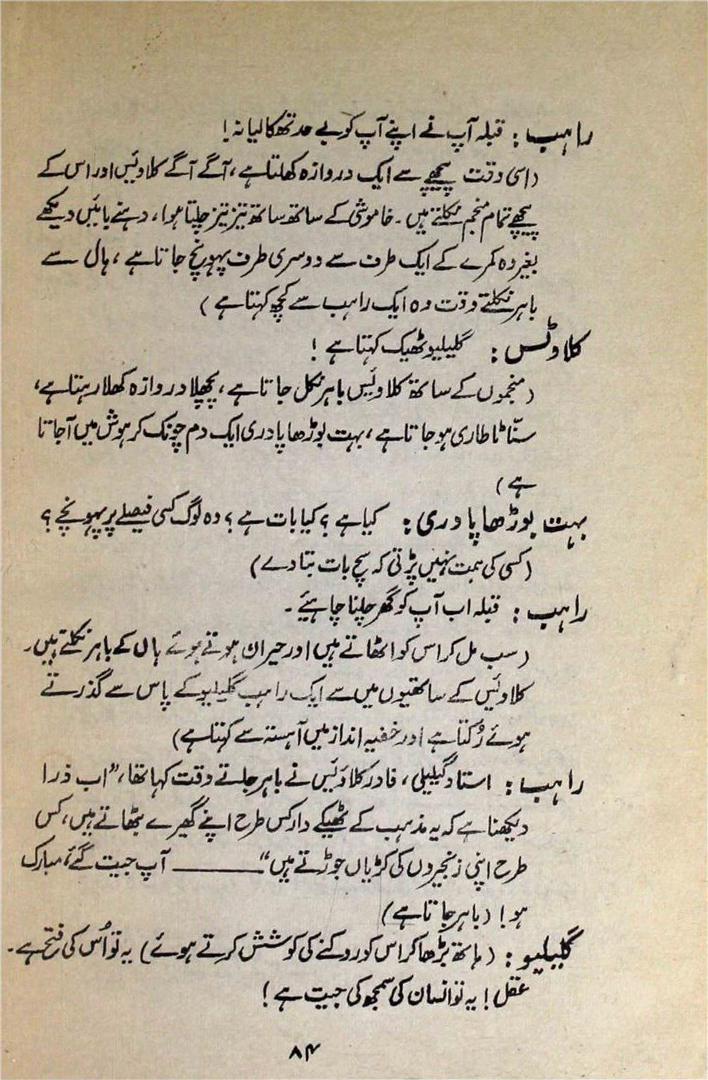 راہب : قبلہ آپ نے اپنے آپ کو بے حد تھکا لیا نہ !
(اسی وقت پیچھے سے ایک دروازہ کھلتا ہے، آگے آگے کلاوئیس اور اس کے
پیچھے تمام منجم نکلتے ہیں۔ خاموشی کے ساتھ ساتھ تیز تیز چلتا ہوا، دہنے بائیں دیکھے
بغیر وہ کمرے کے ایک طرف سے دوسری طرف پہونچ جاتا ہے، ہال سے
باہر نکلتے وقت وہ ایک راہب سے کچھ کہتا ہے)
کلاوئس : گلیلیو ٹھیک کہتا ہے !
(منجموں کے ساتھ کلاوئیس باہر نکل جاتا ہے، پچھلا دروازہ کھلا رہتا ہے،
سنّاٹا طاری ہو جاتا ہے، بہت بوڑھا پادری ایک دم چونک کر ہوش میں آ جاتا
ہے)
بہت بوڑھا پادری : کیا ہے ؟ کیا بات ہے ؟ وہ لوگ کسی فیصلے پر پہونچے ؟
(کسی کی ہمت نہیں پڑتی کہ سچ بات بتا دے)
راہب : قبلہ اب آپ کو گھر چلنا چاہیئے۔
(سب مل کر اس کو اٹھاتے ہیں اور حیران ہوتے ہوئے ہال کے باہر نکلتے ہیں۔
کلاوئیس کے ساتھیوں میں سے ایک راہب گلیلیو کے پاس سے گذرتے
ہوئے رُکتا ہے اور خفیہ انداز میں آہستہ سے کہتا ہے)
راہب : استاد گیلیلی، فادر کلاوئیس نے باہر جاتے وقت کہا تھا، "اب ذرا
دیکھنا ہے کہ یہ مذہب کے ٹھیکے دار کس طرح اپنے گھیرے بٹھاتے ہیں، کس
طرح اپنی زنجیروں کی کڑیاں جوڑتے ہیں" ـــــــــ آپ جیت گئے، مبارک
ہو ! (باہر جاتا ہے)
گلیلیو : (ہاتھ بڑھا کر اس کو روکنے کی کوشش کرتے ہوئے) یہ تو اُس کی فتح ہے۔
عقل ! یہ تو انسان کی سمجھ کی جیت ہے !
۸۴